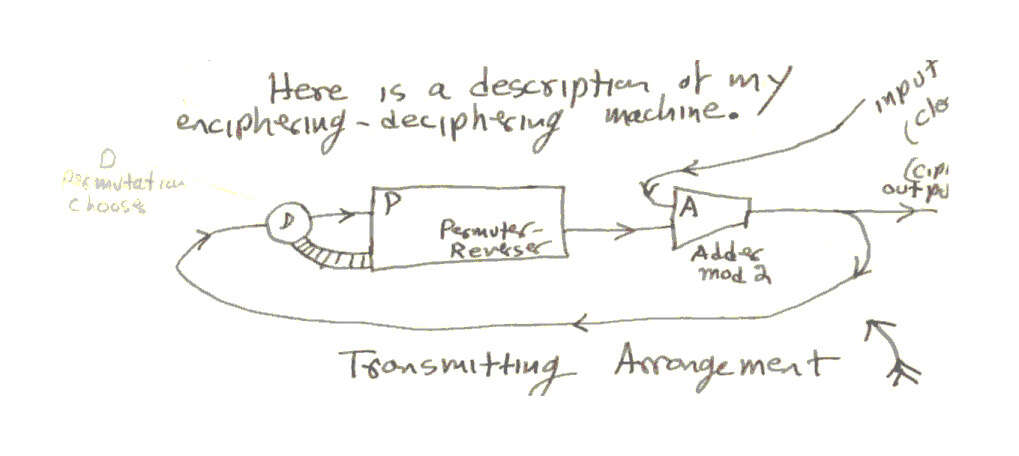 Here is a description of my
enciphering-deciphering machine.
input
(cle
D
Permutation
Chooser
D
P
Permuter-
Reverser
A
Adder
mod 2
(cip
output
Transmitting Arrangement